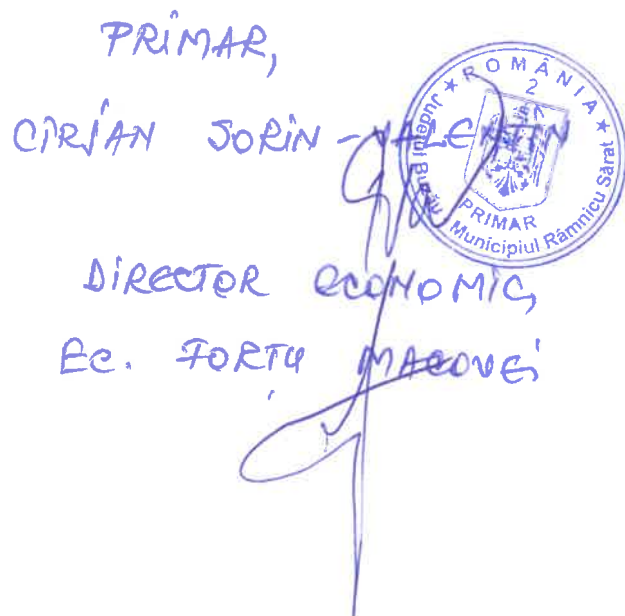 PRIMAR,
CÎRJAN SORIN-VALENTIN
ROMÂNIA
2
Județul Buzău
PRIMAR
Municipiul Râmnicu Sărat
DIRECTOR ECONOMIC,
EC. FORȚU MACOVEI